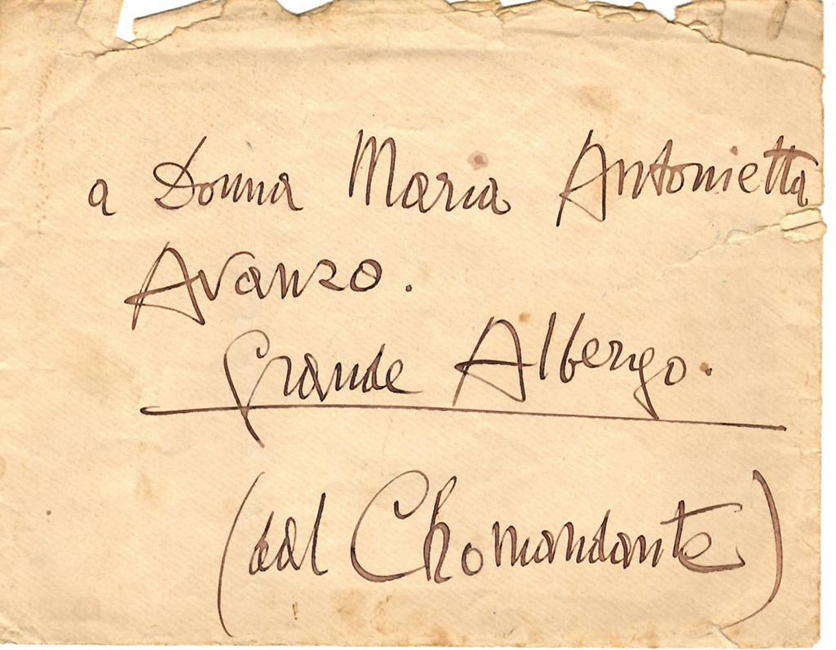 a Donna Maria Antonietta
Avanzo.
Grande Albergo.
(dal Chomandante)